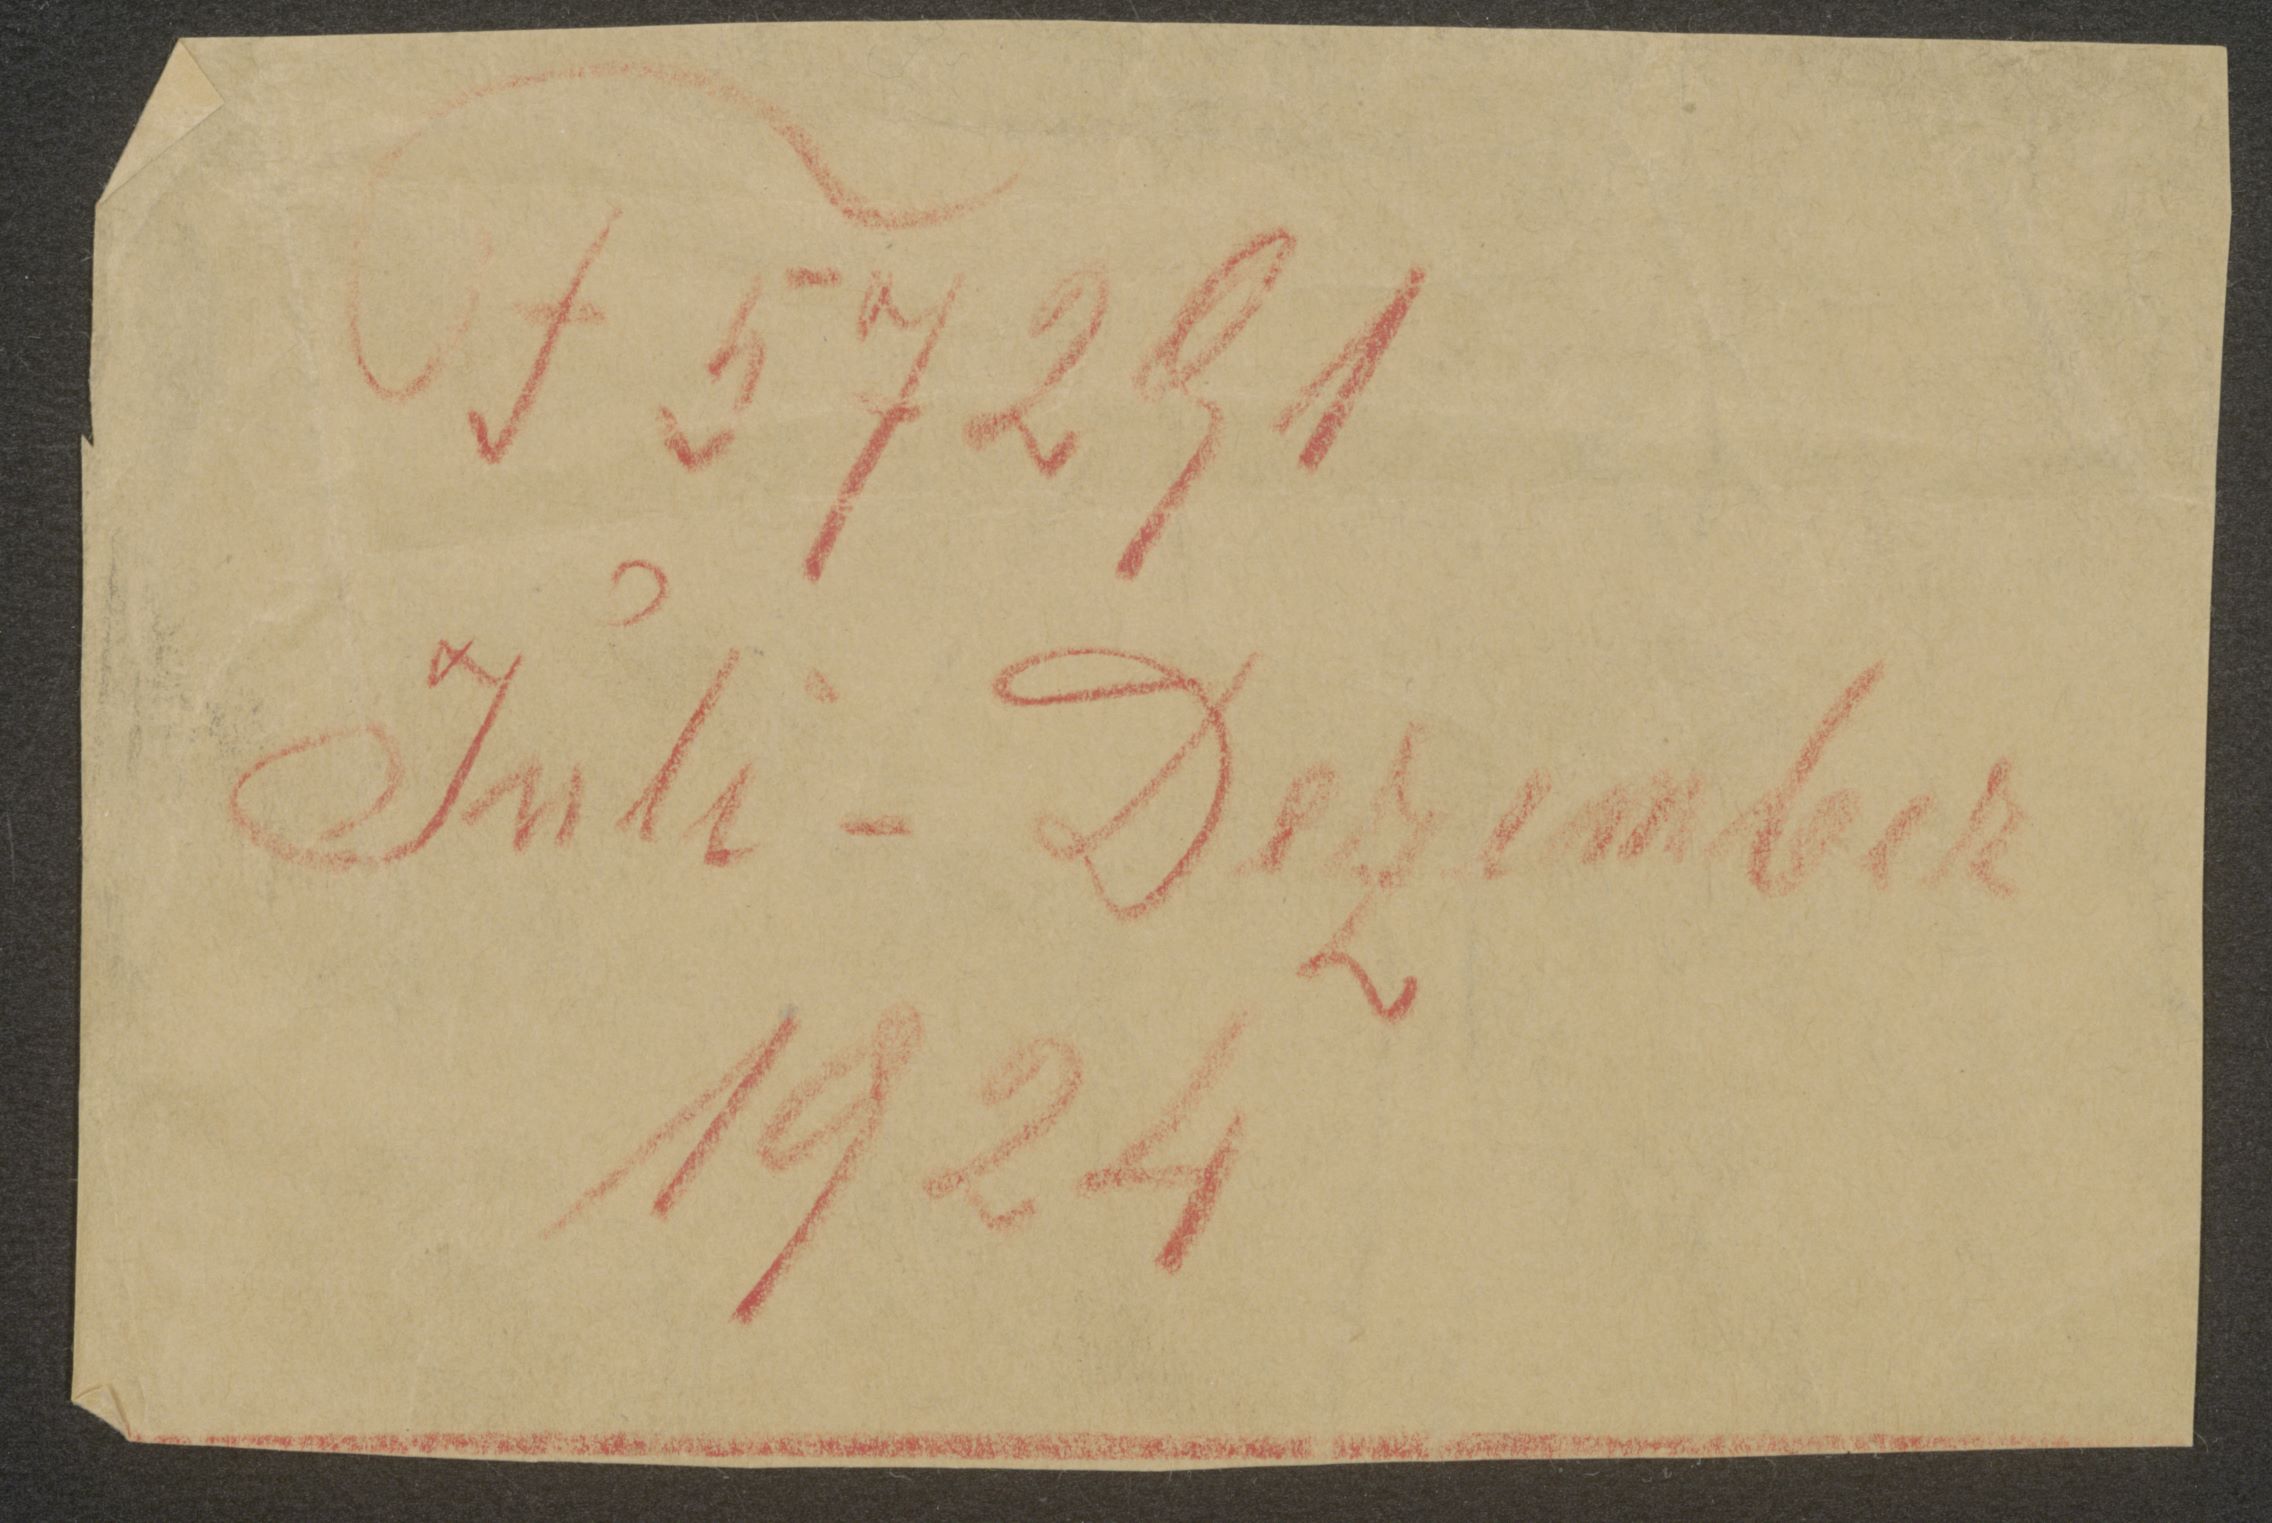 F 57291
Juli - Dezember
1924